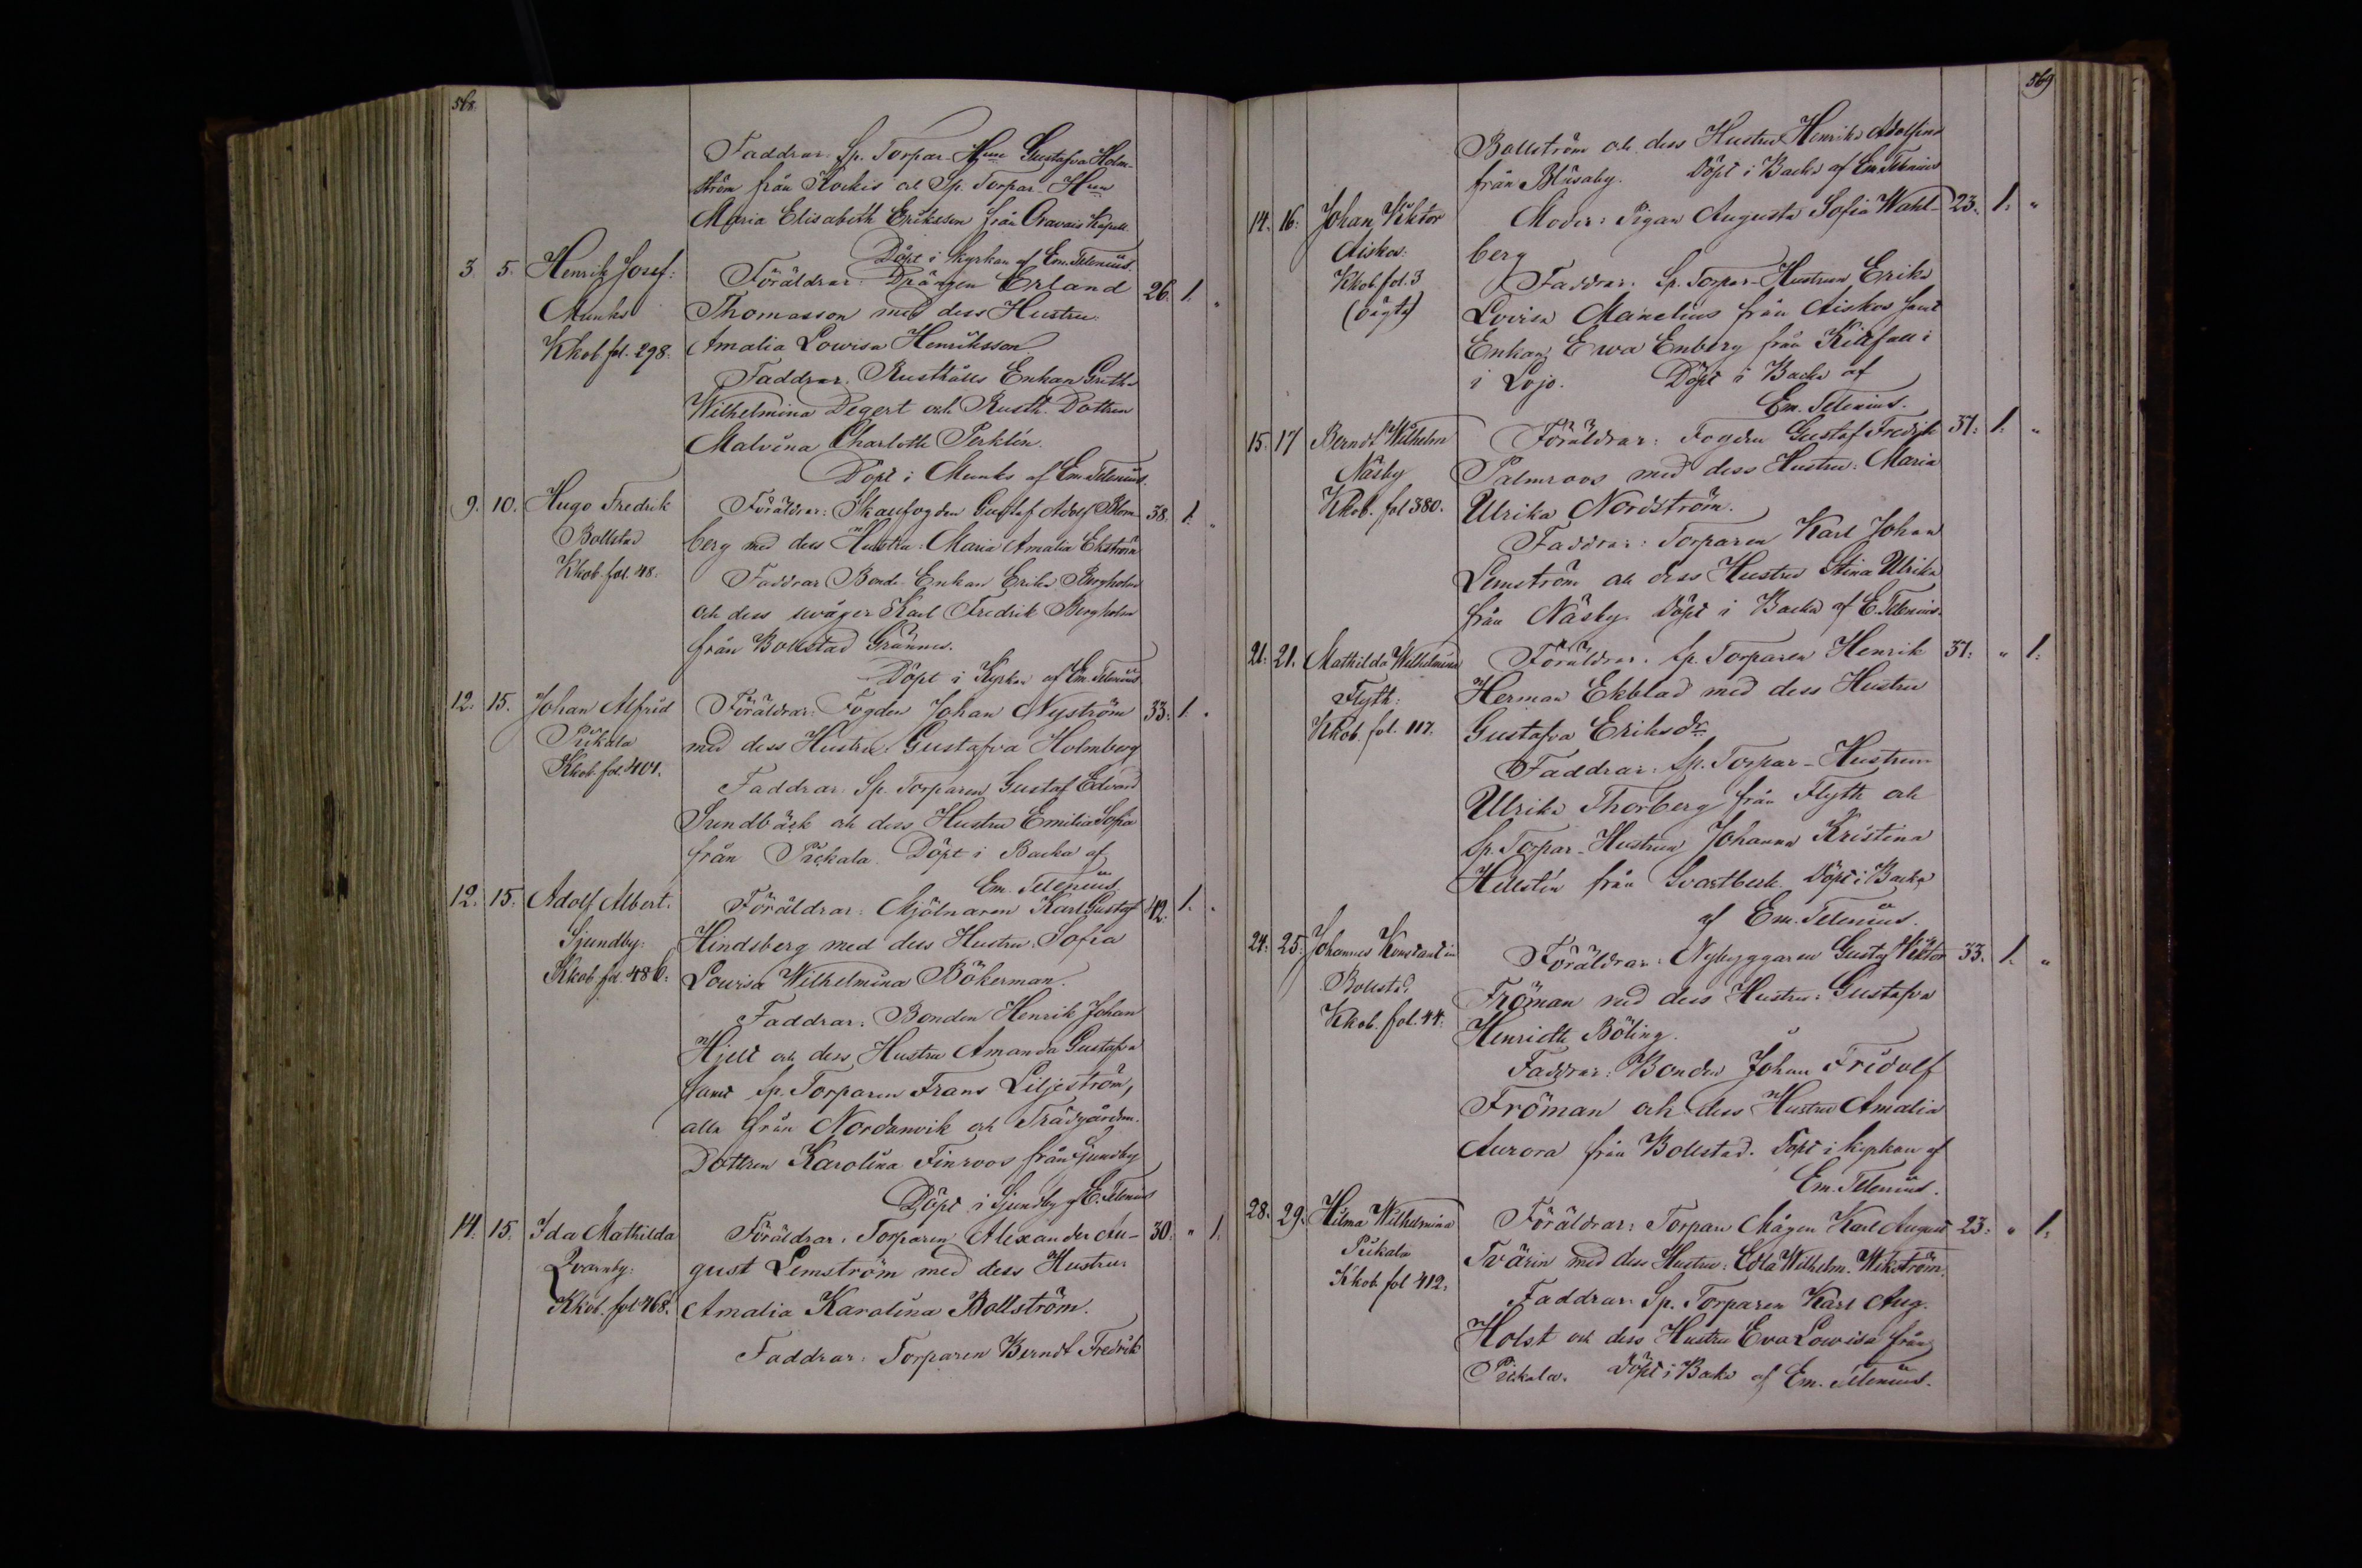 568.
Faddrar: Sp. Torpar-Hun Gustafva Holm-
ström från Kockis och Sp. Torpar-Hun
Maria Elisabeth Eriksson från Oravais Kapell.
Döpt i kyrkan af Em. Telenius.
3. 5. Henrik Josef: Föräldrar: Drängen Erland 26. 1. "
Munks Thomasson med dess Hustru:
Kkob fol. 298. Amalia Lowisa Henriksson
Faddrar: Rusthålls Enkan Greta
Wilhelmina Degert och Rusth. Dottren
Malvina Charlotta Perklén.
Döpt i Munks af Em. Telenius.
9. 10. Hugo Fredrik Föräldrar: Skaufogden Gustaf Adolf Blom- 38. 1. "
Bollstad berg med dess Hustru: Maria Amalia Ekström
Kkob. fol. 48. Faddrar Bonde-Enkan Erika Bergholm
och dess swåger Karl Fredrik Bergholm
från Bollstad Grännes.
Döpt i Kyrkan af Em. Telenius
12. 15. Johan Alfrid Föräldrar: Fogden Johan Nyström 33. 1. "
Pickala med dess Hustru: Gustafva Holmberg
Kkob. fol. 401. Faddrar: Sp. Torparen Gustaf Edvard
Sundbäck och dess Hustru Emilia Sofia
från Pickala. Döpt i Backa af
Em. Telenius.
12. 15. Adolf Albert. Föräldrar: Mjölnaren Karl Gustaf 42. 1. "
Sjundby: Hindsberg med dess Hustru: Sofia
Kkob. fol. 486. Lowisa Wilhelmina Bökerman.
Faddrar: Bonden Henrik Johan
Hjelt och dess Hustru Amanda Gustafva
samt Sp. Torparen Frans Liljeström,
alla från Nordanvik och Trädgårdm.
Dottren Karolina Finroos från Sjundby
Döpt i Sjundby af E. Telenius
14. 15. Ida Mathilda Föräldrar: Torparen Alexander Au- 30. " 1.
Qvarnby: gust Lemström med dess Hustru:
Kkob. fol 468. Amalia Karolina Bollström.
Faddrar: Torparen Berndt Fredrik
569
Bollström och dess Hustru Henrika Adolfina
från Blusaby. Döpt i Backa af Em. Telenius
14. 16. Johan Viktor Moder: Pigan Augusta Sofia Wahl- 23. 1. "
Aiskos: berg
Kkob. fol. 3 Faddrar: Sp. Torpar-Hustrun Erika
(oägta) Lovisa Manelius från Aiskos samt
Enkan Ewa Enberg från
i Lojo. Döpt i Backa af
Em. Telenius.
15. 17 Berndt Wilhelm Föräldrar: Fogden Gustaf Fredrik 37. 1. "
Näsby Palmroos med dess Hustru: Maria
Kkob. fol 380. Ulrika Nordström.
Faddrar: Torparen Karl Johan
Lemström och dess Hustru Stina Ulrika
från Näsby. Döpt i Backa af E. Telenius.
21. 21. Mathilda Wilhelmina Föräldrar: Sp. Torparen Henrik 37. " 1.
Flyth: Herman Ekblad med dess Hustru
Kkob. fol. 117. Gustafva Eriksdr.
Faddrar: Sp. Torpar-Hustrun
Ulrika Thorberg från Flyth och
Sp. Torpar-Hustrun Johanna Kristina
Hellstén från Svartbeck. Döpt i Backa
af Em. Telenius.
24. 25. Johannes Konstantin Föräldrar: Nybyggaren Gustaf Viktor 33. 1. "
Bollstad. Fröman med dess Hustru: Gustafva
Kkob. fol. 44. Henrietta Böling.
Faddrar: Bonden Johan Fridolf
Fröman och dess Hustru Amalia
Aurora från Bollstad. Döpt i kyrkan af
Em. Telenius.
28. 29. Hilma Wilhelmina Föräldrar: Torpare Mågen Karl August 23. " 1.
Pickala Tvärin med dess Hustru: Edla Wilhelm. Wikström.
Kkob. fol 412. Faddrar: Sp. Torparen Karl Aug.
Holst och dess Hustru Eva Lowisa från
Pickala. Döpt i Backa af Em. Telenius.